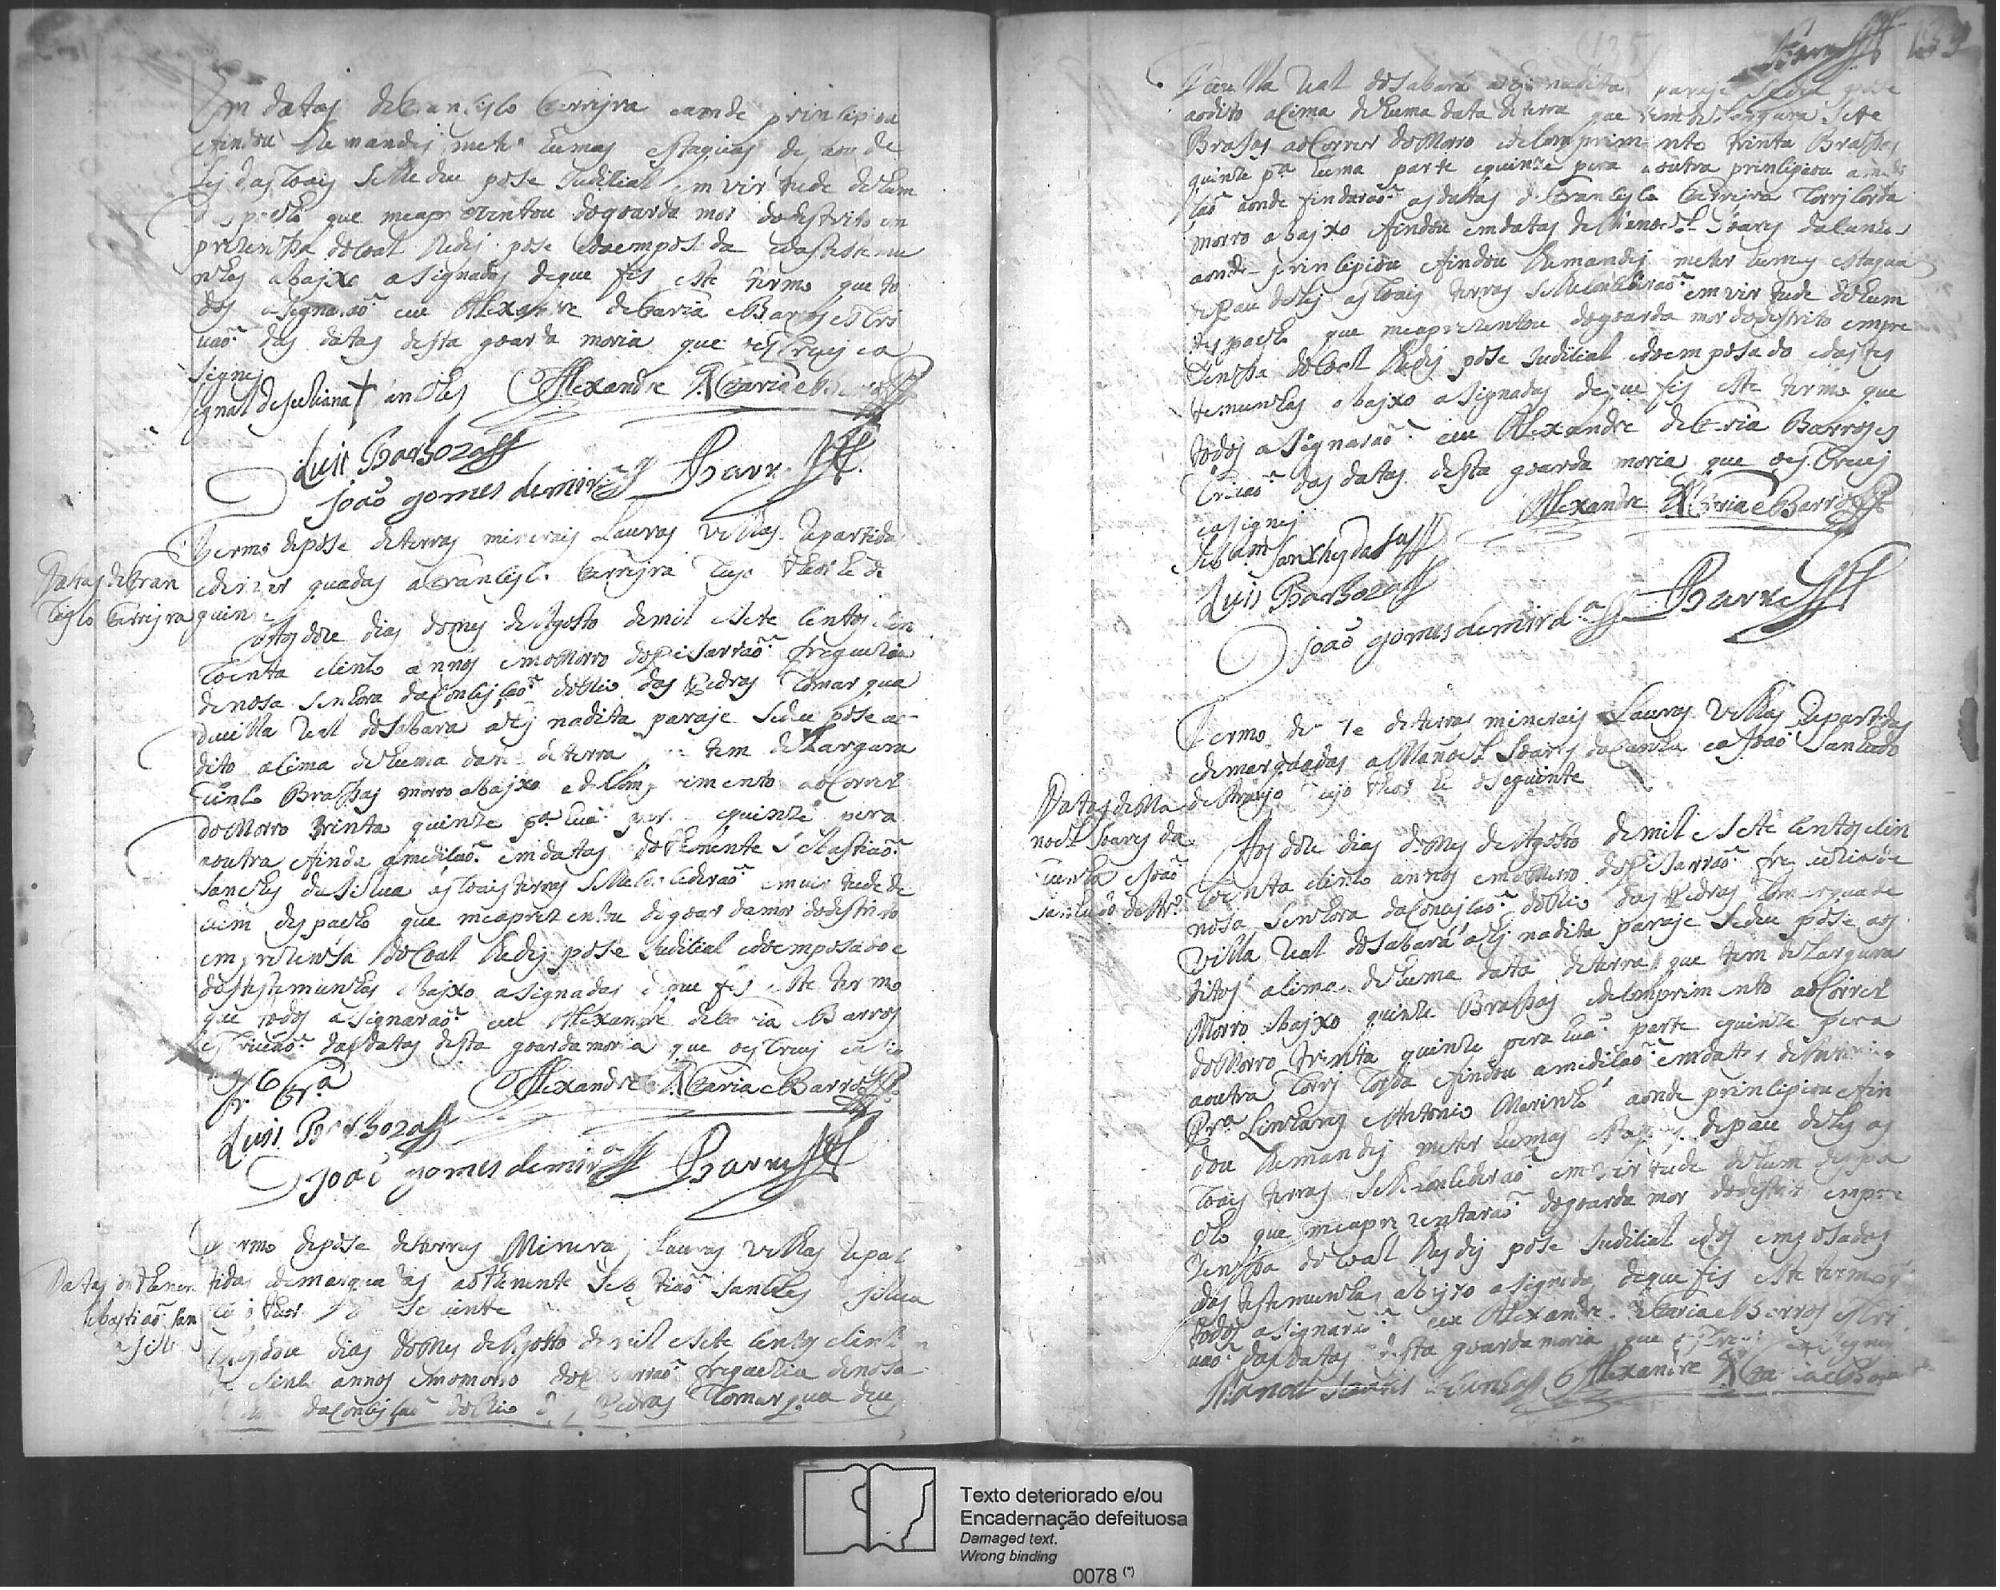 Em datas de Francisco Ferreyra aonde principiou
efindou Remandej meter humas estaquas de pau de
Lej das coais selhe deu pose Judicial em virtude dehum
despacho que meaprezentou dogoarda mor dodestrito em
prezensa docoal Redej pose edoemposada edastestemu
nhas abajxo asignadas deque fis este termo que to
dos asignaraõ eu Alexandre deFaria eBarros escri
uaõ das datas desta goarda moria que oescreuj ea
signej
signal deJuliana + Alexandre de Faria e Barros
Luis Barboza
Joaõ gomes demir.da Barros
Termo depose deterras minerais Lauras velhas Repartidas
Datas deFran
cisco Ferreyra
edemarquadas aFrancisco Ferreyra cujo theor he o
seguinte
Aos doze dias domes deAgosto demil eSete centos ecin
coenta ecinco annos emoMorro dopisarraõ freguezia
denosa senhora daConceiçaõ doRio das Pedras Comarqua
davilla Real doSabara ahj nadita paraje sedeu pose ao
dito asima dehuma data deterra que tem deLargura
cinco Brasas morro abajxo edecomprimento aoCorrer
doMorro trinta quinze p.a huã parte equinze pera
aoutra efinda amediçaõ emdatas doThenente Sebastiaõ
Sanches da Silua as coais terras selheconcederaõ emuirtude de
hum despacho que meaprezentou dogoardamor dodestrito
emprezensa docoal Redej pose Judicial edoemposado e
dastestemunhas abajxo asignadas deque fis este termo
que todos asignaraõ eu Alexandre deFaria eBarros
escriuaõ das datas desta goardamoria que oescreuj easig
Fr.co Fr.a Alexandre de Faria e Barros
Luis Barboza
Joaõ gomes demir.da Barros
Termo depose deterras Minerais Lauras velhas Repar
Datas doThenen
Sebastiaõ San
Silu
tidas edemarquadas aoThenente Sebastiaõ Sanches Silua
cujo theor he oseguinte
Aos doze dias domes deAgosto demil eSete centos ecinco
e sinco annos emomorro dopisarraõ freguezia denosa
daConceiçaõ doRio das Pedras Comarqua da
Barros 134
(135)
Villa Real doSabara ahj nadita paraje sedeu pose
aodito asima dehuma data deterra que tem deLargura Sete
Brasas aoCorrer doMorro edecomprimento trinta Brasas
quinze p.a huma parte equinze pera aoutra principiou amedi
çaõ aonde findaraõ as datas deFrancisco Ferreyra Corrj Corda
morro abajxo efindou emdatas deManoel Soares daCunha
aonde principiou efindou Remandej meter humas estaquas
depau deLej as coais terras selheconcederaõ em virtude dehum
despacho que meaprezentou dogoarda mor dodestrito empre
zensa docoal Redej pose Judicial edoemposado edastes
temunhas abajxo asignadas deque fis este termo que
todos asignaraõ eu Alexandre deFaria Barroses
criuaõ das datas desta goarda moria que oescreuj
easignej Alexandre de Faria e Barros
Sebam Sanxhes da Sa
Luis Barboza
Joaõ gomes demird.a Barros
Termo de pose deterras minerais Lauras velhas Repartidas
edemarquadas aManoel Soares daCunha eaJoaõ Sanhudo
Datas deMa
noel Soares da
Cunha eJoaõ
Sanhudo deAr.o
deAraujo cujo theor he oseguinte
Aos doze dias domes deAgosto demil eSete centos ecin
coenta ecinco annos emoMorro dopisarraõ freguezia de
nosa senhora daConceiçaõ doRio das Pedras Comarqua de
Villa Real doSabara ahj nadita paraje sedeu pose aos
ditos asima dehuma data deterra que tem deLargura
Morro abajxo quinze Brasas edecomprimento aoCorrer
doMorro trinta quinze pera huã parte equinze pera
aoutra Corrj Corda efindou amediçaõ emdatas deAntonio
Pr.a Linhares eAntonio Marinho aonde principiou efin
dou Remandej meter humas estaquas depau deLej as
coais terras selhe concederaõ em virtude dehum despa
cho que meaprezentaraõ dogoarda mor dodestrito empre
zensa docoal Redej pose Judicial edos emposados
edas testemunhas abajxo asignadas deque fis este termo q
todos asignaraõ eu Alexandre deFaria eBarros escri
uaõ das datas desta goarda moria que oescreuj easignej
Manoel Soares daCunha Alexandre de Faria e Barros
Texto deteriorado e/ou
Encadernação defeituosa
Damaged text.
Wrong binding
0078 (*)